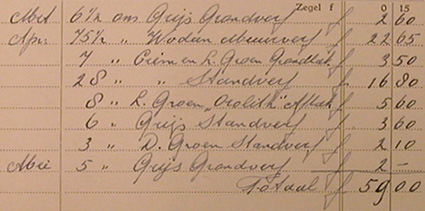 Zegel f 0 15
Mrt 6 1/2 ons Grijs Grondverf f 2 60
Apr. 75 1/2 " Wodan Muurverf f 22 65
7 " Crème en L. Groen Grondlak f 3 50
28 " " Standverf f 16 80
8 " L. Groen "Orolith" Aflak f 5 60
6 " Grijs Standverf f 3 60
3 " D. Groen Standverf f 2 10
Mei 5 " Grijs Grondverf f 2 —
Totaal f 59 00